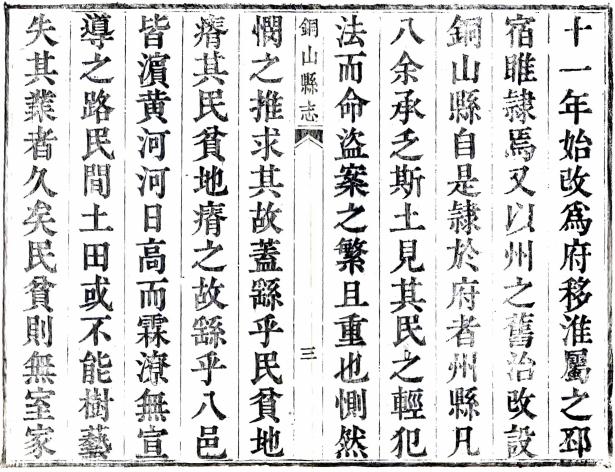 十一年始改爲府移淮屬之邳
宿睢隷焉又以州之舊治改設
銅山縣自是隷於府者州縣凡
八余承乏斯土見其民之輕犯
法而命盜案之繁且重也惻然
銅山縣志
三
憫之推求其故蓋繇乎民貧地
瘠其民貧地瘠之故繇乎八邑
皆濵黄河河日高而霖潦無宣
導之路民間土田或不能樹藝
失其業者久矣民貧則無室家